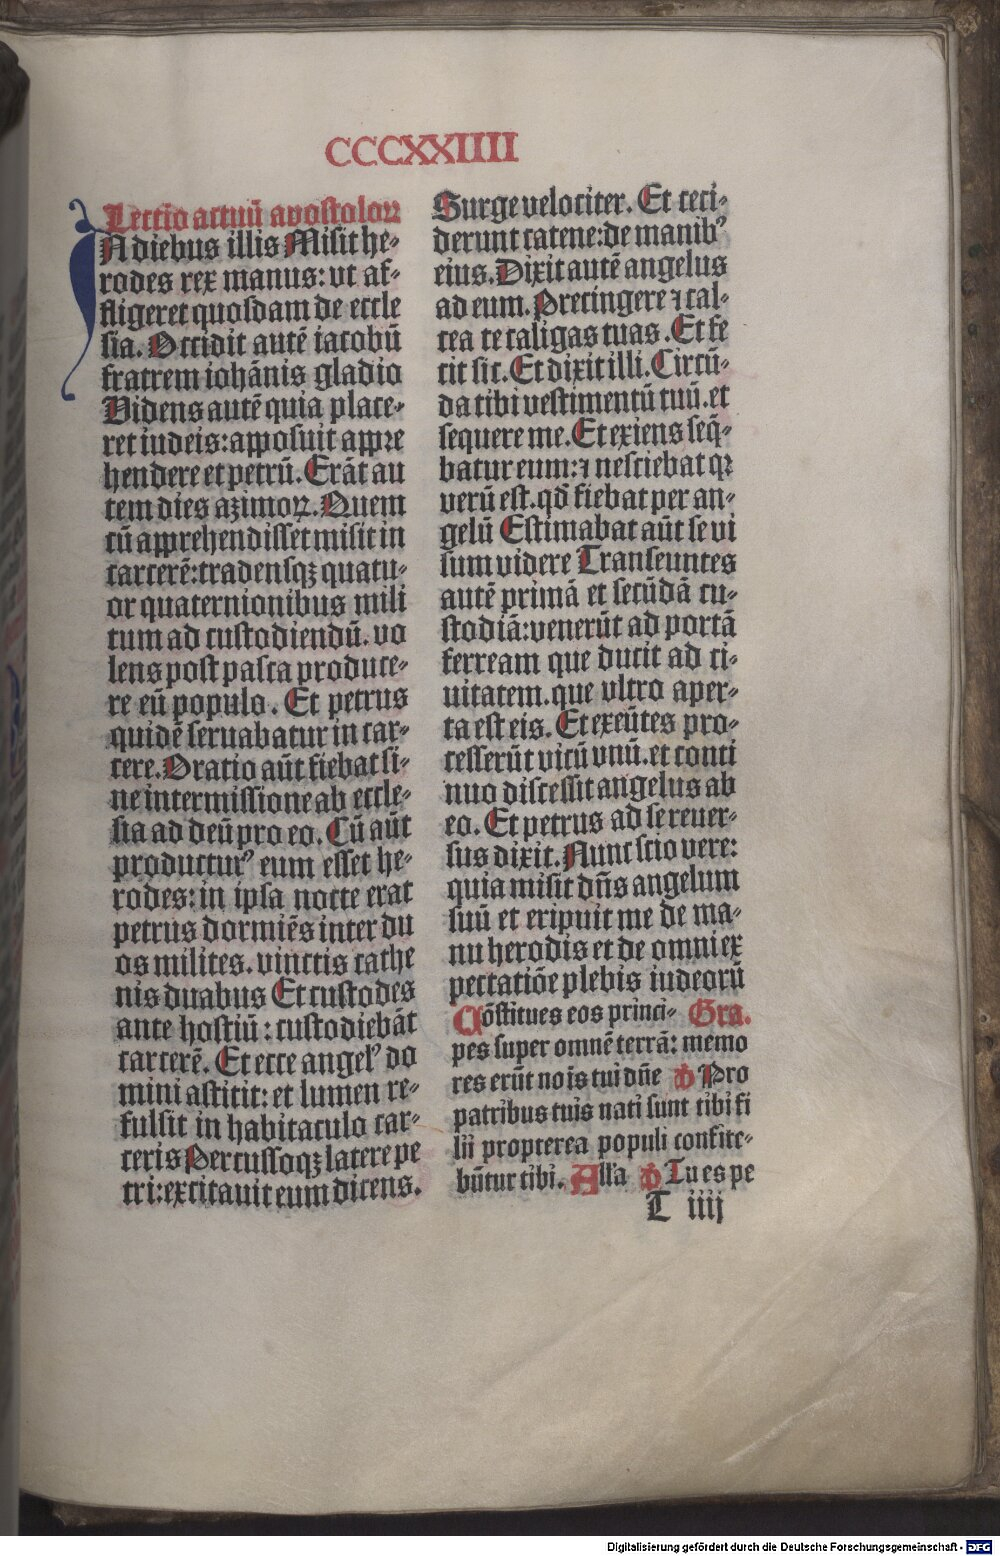 CCCXXIIII
Lectio actuū apostoloꝝ
IN diebus illis Misit he⸗
rodes rex manus: vt af⸗
fligeret quosdam de eccle
sia. Occidit autē iacobū
fratrem iohānis gladio
Uidens autē quia place⸗
ret iudeis: apposuit appre
hendere et petrū. Erāt au
tem dies azimoꝝ. Quem
cū apprehendisset misit in
carcerē: tradensqꝫ quatu⸗
or quaternionibus mili
tum ad custodiendū. vo
lens post pasca produce⸗
re eū populo. Et petrus
quidē seruabatur in car⸗
cere. Oratio aūt fiebat si⸗
ne intermissione ab eccle⸗
sia ad deū pro eo. Cū aūt
producturꝰ eum esset he⸗
rodes: in ipsa nocte erat
petrus dormiēs inter du
os milites. vinctis cathe
nis duabus Et custodes
ante hostiū: custodiebāt
carcerē. Et ecce angelꝰ do
mini astitit: et lumen re⸗
fulsit in habitaculo car⸗
ceris Percussoqꝫ latere pe
tri: excitauit eum dicens.
Surge velociter. Et ceci⸗
derunt catene: de manibꝰ
eius. Dixit autē angelus
ad eum. Precingere ⁊ cal⸗
cea te caligas tuas. Et fe
cit sic. Et dixit illi. Circū⸗
da tibi vestimentū tuū. et
sequere me. Et exiens seq̄⸗
batur eum: ⁊ nesciebat qꝛ
verū est. qd̄ fiebat per an⸗
gelū Estimabat aūt se vi
sum videre Transeuntes
autē primā et secūdā cu⸗
stodiā: venerūt ad portā
ferream que ducit ad ci⸗
uitatem. que vltro aper⸗
ta est eis. Et exeūtes pro⸗
cesserūt vicū vnū. et conti
nuo discessit angelus ab
eo. Et petrus ad se reuer⸗
sus dixit. Nunc scio vere:
quia misit dn̄s angelum
suū et eripuit me de ma⸗
nu herodis et de omni ex
pectatiōe plebis iudeorū
Cōstitues eos princi⸗ Gra.
pes super omnē terrā: memo
res erūt nois tui dn̄e ꝟ Pro
patribus tuis nati sunt tibi fi
lii propterea populi confite⸗
būtur tibi. All'a ꝟ Tu es pe
T iiij
Digitalisierung gefördert durch die Deutsche Forschungsgemeinschaft - DFG